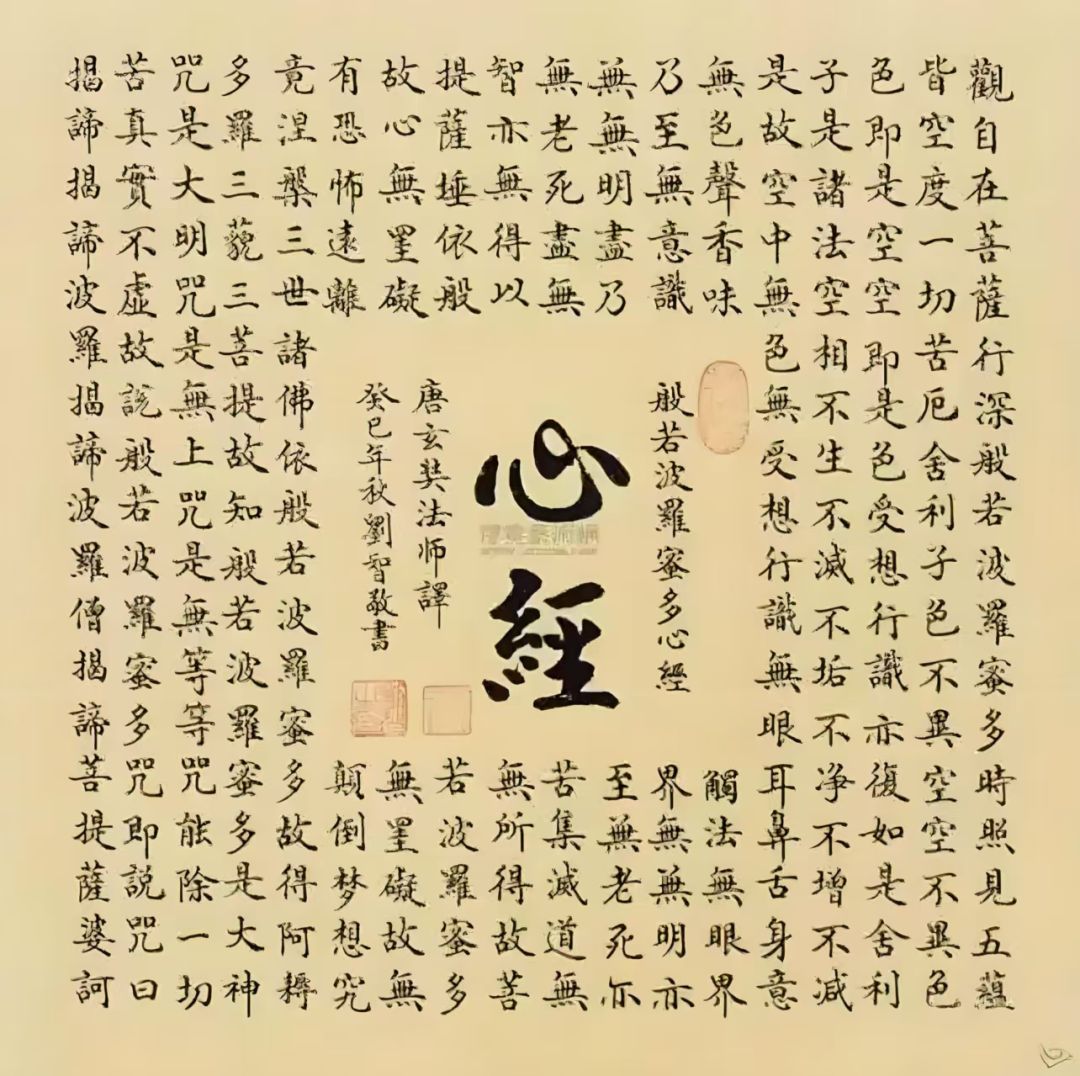 觀自在菩薩行深般若波羅蜜多時照見五蘊
皆空度一切苦厄舍利子色不異空空不異色
色即是空空即是色受想行識亦復如是舍利
子是諸法空相不生不滅不垢不净不增不减
是故空中無色無受想行識無眼耳鼻舌身意
無色聲香味觸法無眼界
乃至無意識界無無明亦
無無明盡乃至無老死亦
無老死盡無苦集滅道無
智亦無得以無所得故菩
提薩埵依般若波羅蜜多
故心無罣礙無罣礙故無
有恐怖遠離顛倒梦想究
竟涅槃三世諸佛依般若波羅蜜多故得阿耨
多羅三藐三菩提故知般若波羅蜜多是大神
咒是大明咒是無上咒是無等等咒能除一切
苦真實不虛故説般若波羅蜜多咒即説咒曰
揭諦揭諦波羅揭諦波羅僧揭諦菩提薩婆訶
般若波羅蜜多心經
心經
唐玄奘法師譯
癸巳年秋劉智敬書